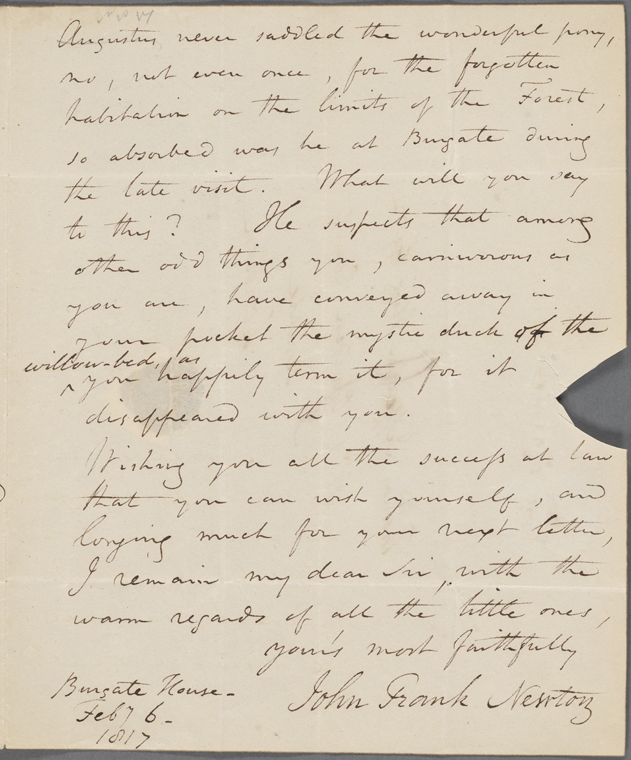 Augustus never saddled the wonderful pony,
no, not even once, for the forgotten
habitation on the limits of the Forest,
so absorbed was he at Burgate during
the late visit. What will you say
to this? He suspects that among
other odd things you, carnivorous as
you are, have conveyed away in
your pocket the mystic duck of the
willow-bed, as
you happily term it, for it
disappeared with you.
Wishing you all the success at law
that you can wish yourself, and
longing much for your next letter,
I remain my dear Sir, with the
warm regards of all the little ones,
your's most faithfully
John Frank Newton
Burgate House-
Feby 6-
1817